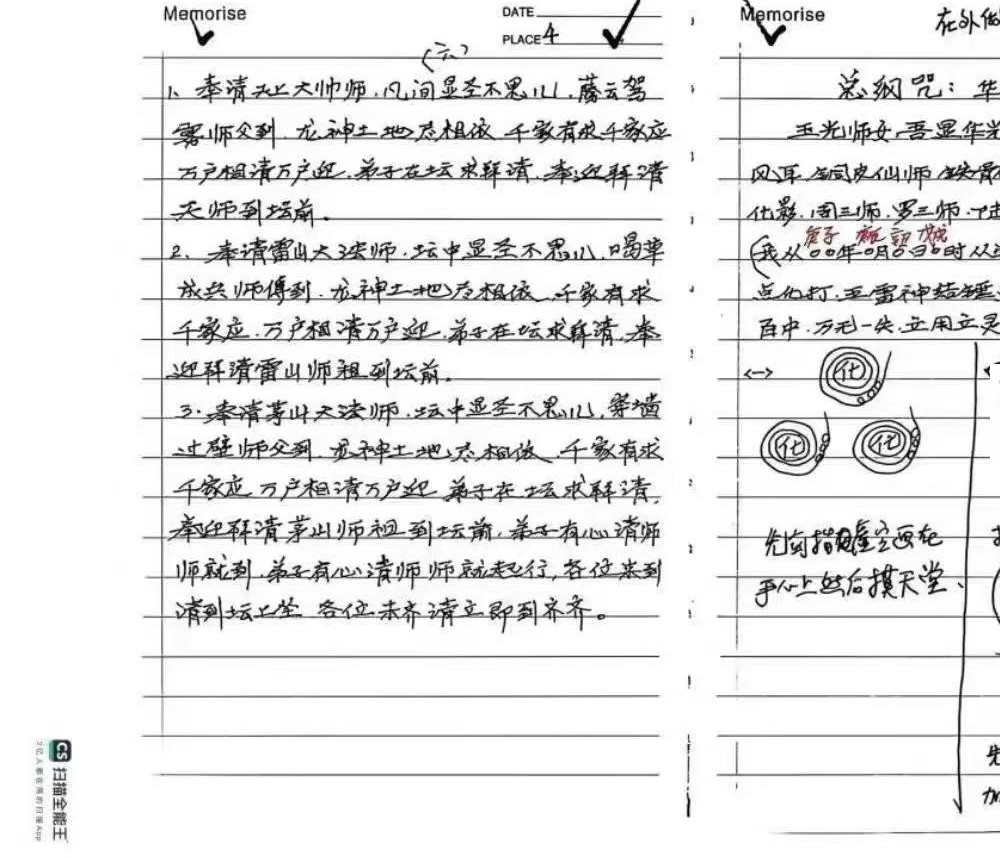 Memorise
DATE
PLACE 4
(六)
1、奉请天上大帅师.凡间显圣不思儿.藤云驾
雾师父到.龙神土地总相依.千家有求千家应
万户相请万户迎.弟子在坛求拜请.奉迎拜请
天师到坛前。
2、奉请雷山大法师.坛中显圣不思儿.喝草
成兵师傅到.龙神土地总相依.千家有求
千家应.万户相请万户迎.弟子在坛求拜请.奉
迎拜请雷山师祖到坛前。
3、奉请茅山大法师.坛中显圣不思儿.穿墙
过壁师父到.龙神土地总相依.千家有求
千家应.万户相请万户迎.弟子在坛求拜请.
奉迎拜请茅山师祖到坛前.弟子有心请师
师就到.弟子有心请师师就起行.各位来到
请到坛上坐.各位未齐请立即到齐齐。
Memorise
在外
总纲咒：华
玉光师女.吾显华光
风耳.铜皮仙师.铁骨
化影.周三师.罗三师.
(我从00年0月0日0时从
点化打.五雷神
百中.万无一失.立用立灵
<一>
化
化
化
手心上然后摸天堂、
先
加
CS 扫描全能王
3亿人都在用的扫描App